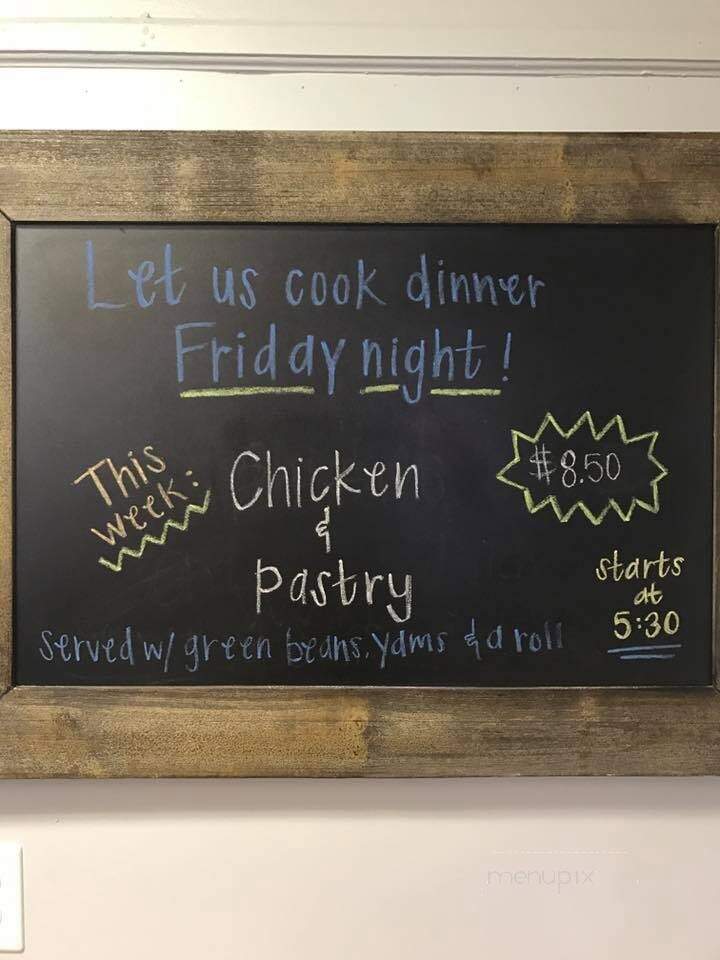 Let us cook dinner
Friday night!
This
week:
Chicken
&
pastry
$8.50
starts
at
5:30
served w/ green beans, yams & a roll
menupix